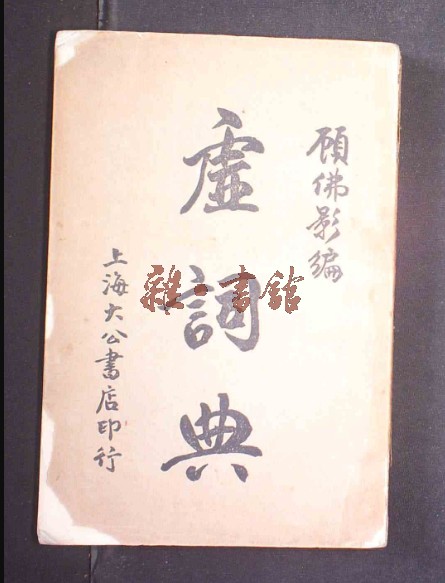 顾佛影編
虛詞典
上海大公書店印行
雜·書館